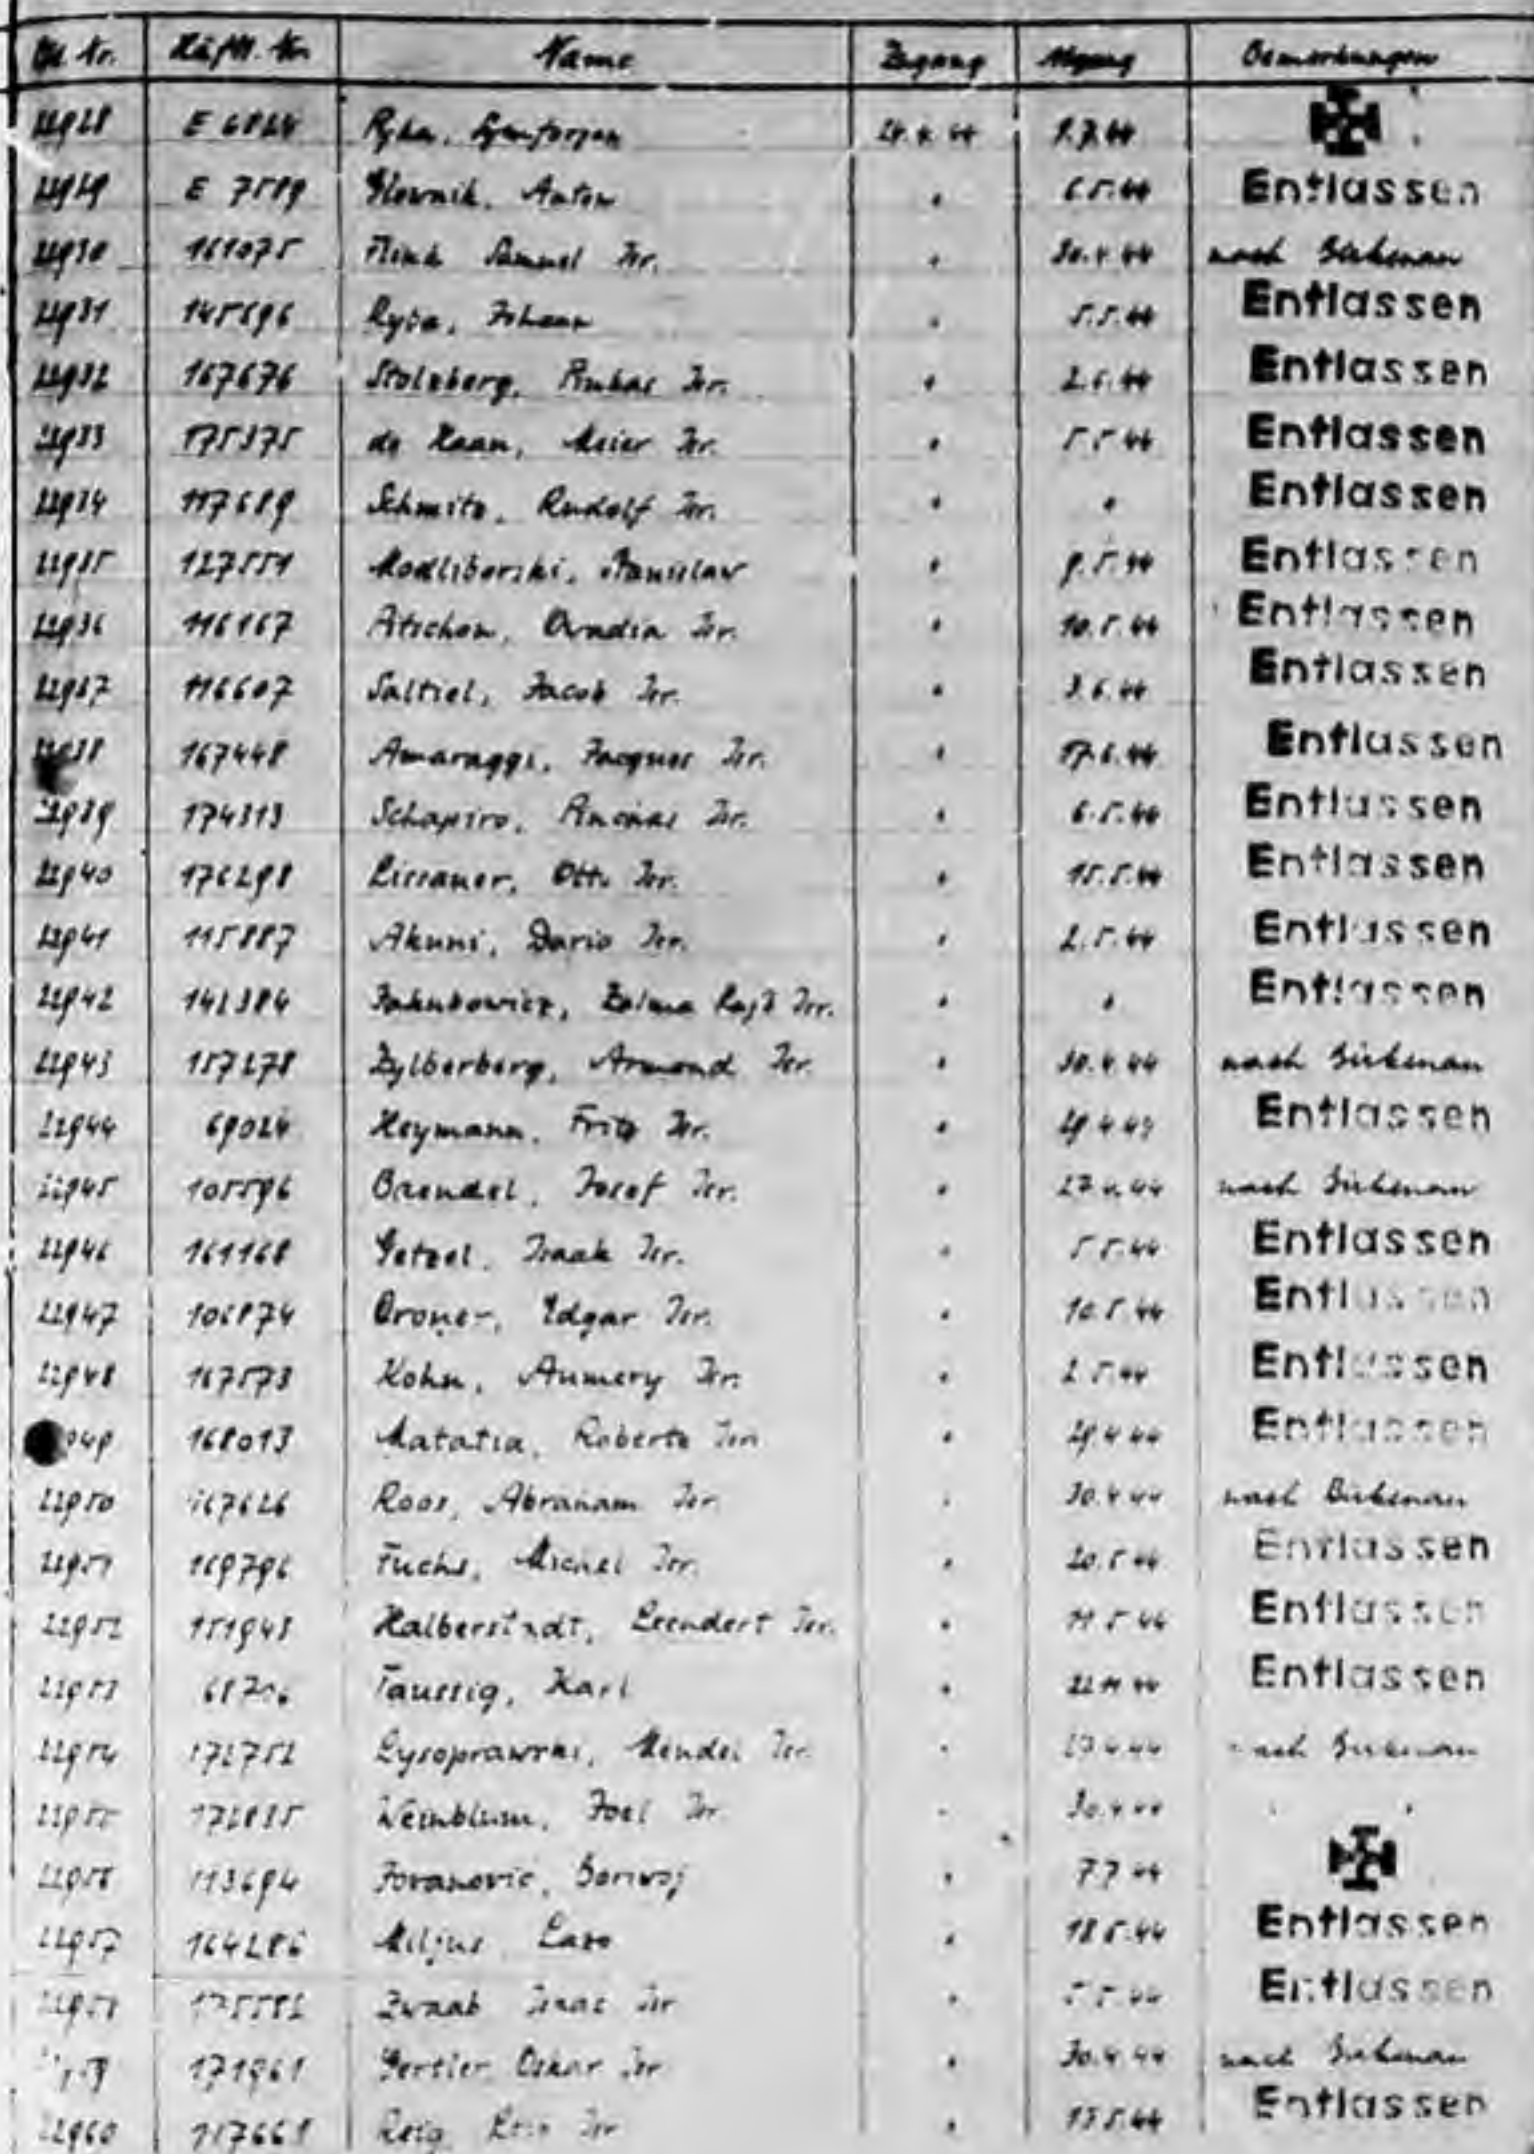 Lfd. Nr. Häftl. Nr. Name Zugang Abgang Bemerkungen
22928 E 6824 24.4.44
22929 E 7589 Anton " 6.5.44 Entlassen
22930 161075 Samuel Isr. " 30.4.44 nach Birkenau
22931 145696 Johann " 5.5.44 Entlassen
22932 167676 Stolzberg, Pinkas Isr. " 2.6.44 Entlassen
22933 175375 de Haan, Meier Isr. " 5.5.44 Entlassen
22934 117689 Schmitz, Rudolf Isr. " " Entlassen
22935 127551 Modliborski, Stanislaw " 9.5.44 Entlassen
22936 116167 Atschon, Ovadia Isr. " 10.5.44 Entlassen
22937 116607 Saltiel, Jacob Isr. " 3.6.44 Entlassen
22938 167448 Amaraggi, Jacques Isr. " 17.6.44 Entlassen
22939 174313 Schapiro, Isr. " 6.5.44 Entlassen
22940 176298 Lissauer, Otto Isr. " 15.5.44 Entlassen
22941 115887 Akuni, Dario Isr. " 2.5.44 Entlassen
22942 142384 Jakubowicz, Isr. " " Entlassen
22943 157278 Zylberberg, Armand Isr. " 30.4.44 nach Birkenau
22944 69024 Heymann, Fritz Isr. " 29.4.44 Entlassen
22945 105596 Josef Isr. " 27.4.44 nach Birkenau
22946 161168 Getzel, Isaak Isr. " 5.5.44 Entlassen
22947 106874 Edgar Isr. " 10.5.44 Entlassen
22948 167573 Kohn, Aumery Isr. " 2.5.44 Entlassen
168013 Matatia, Roberto Isr. " 29.4.44 Entlassen
22950 167626 Roos, Abraham Isr. " 30.4.44 nach Birkenau
22951 169796 Fuchs, Michel Isr. " 20.5.44 Entlassen
22952 151943 Halberstadt, Leendert Isr. " 11.5.44 Entlassen
22953 Taussig, Karl " 22.11.44 Entlassen
22954 172752 Mendel Isr. " 27.4.44 nach Birkenau
22955 172835 Weinblum, Joel Isr. " 30.4.44 " "
22956 113694 Jovanovic, Boriwoj " 7.7.44
22957 164286 Miljus Lazo " 18.5.44 Entlassen
22958 175582 Zwaab Isaac Isr " 5.5.44 Entlassen
171961 Gertler Oskar Isr " 30.4.44 nach Birkenau
22960 Isr " 15.5.44 Entlassen